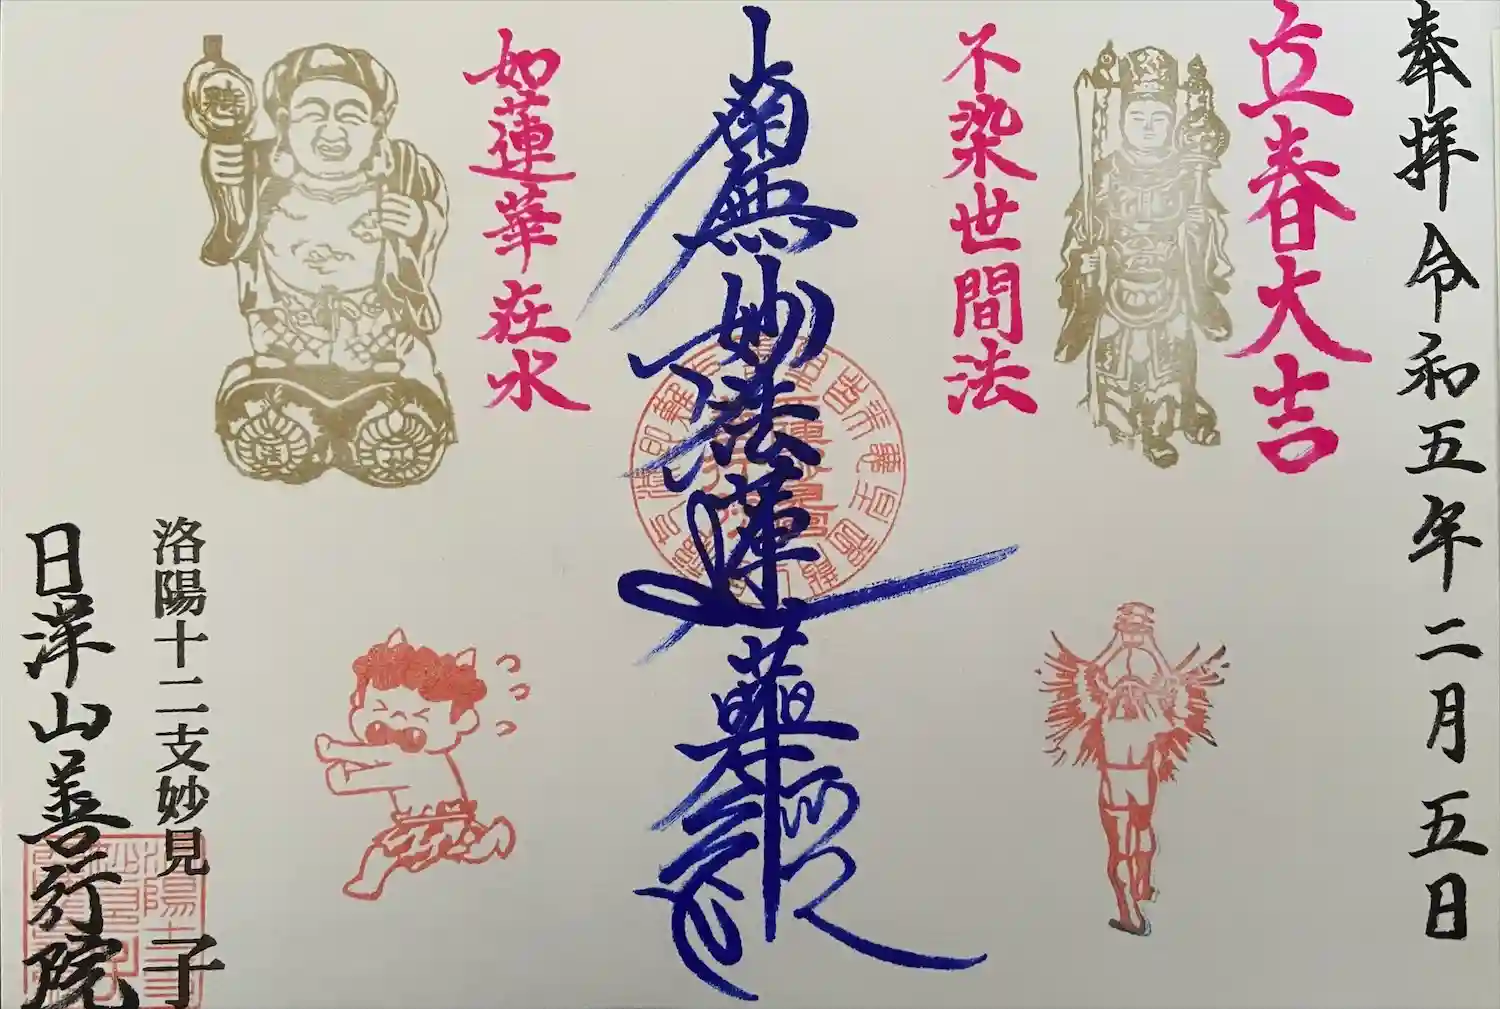 奉拝令和五年二月五日
立春大吉
不染世間法
南無妙法蓮華経
如蓮華在水
洛陽十二支妙見 子
日洋山善行院